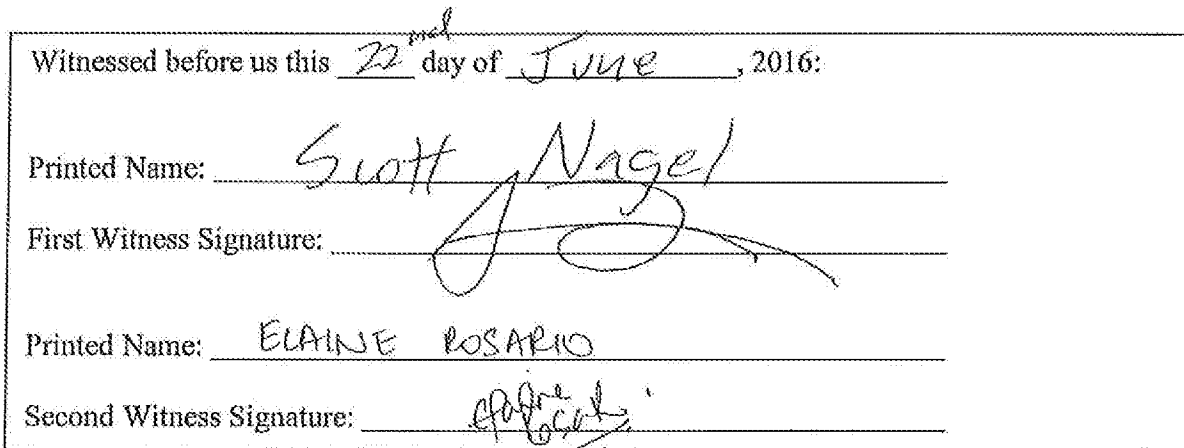 Witnessed before us this 22nd day of June, 2016:
Printed Name: Scott Nagel
First Witness Signature:
Printed Name: ELAINE ROSARIO
Second Witness Signature: